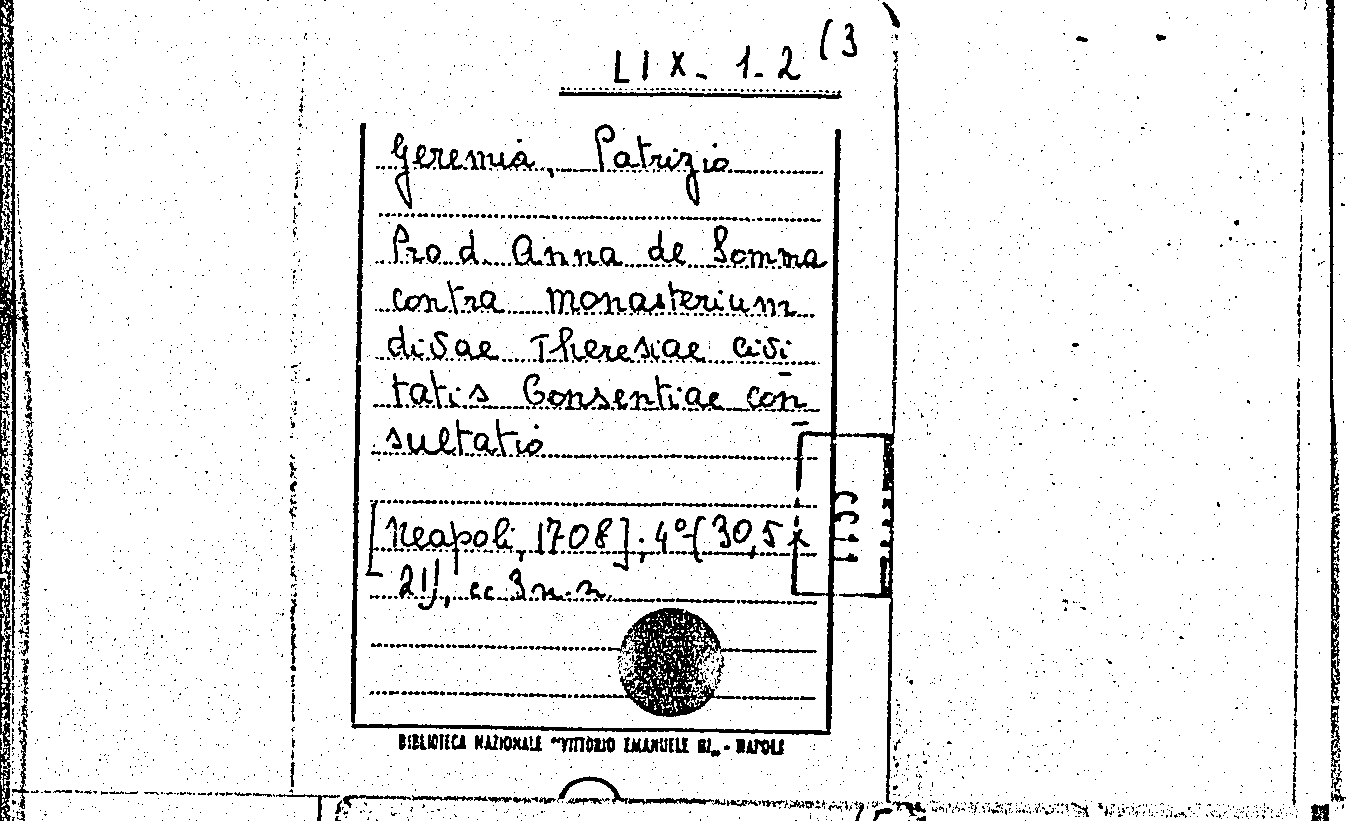 LIX. 1. 2 (3
Geremia, Patrizio
Pro d. Anna de Somma
contra monasterium
divae Theresiae civi
tatis Consentiae con
sultatio
[Neapoli, 1708]; 4° (30,5 x
21), cc 3 n.n.
BIBLIOTECA NAZIONALE "VITTORIO EMANUELE III" - NAPOLI